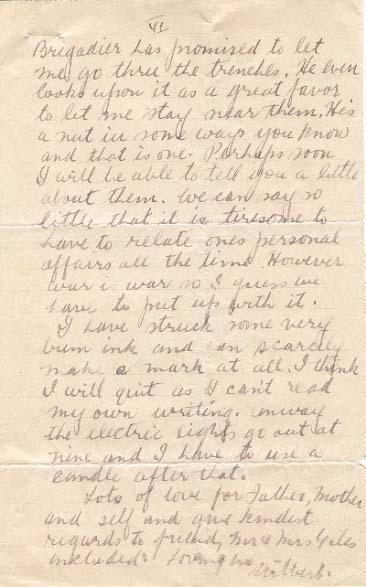 VI
Brigadier has promised to let
me go thru the trenches. He even
looks upon it as a great favor
to let me stay near them. He's
a nut in some ways you know
and that is one. Perhaps soon
I will be able to tell you a little
about them. We can say so
little that it is tiresome to
have to relate ones personal
affairs all the time. However
war is war so I guess we
have to put up with it.
I have struck some very
bum ink and can scarcely
make a mark at all. I think
I will quit as I can't read
my own writing. anway
the electric lights go out at
nine and I have to use a
candle after that.
Lots of love for Father, Mother
and self and give kindest
regards to friends, Mr & Mrs Giles
included.